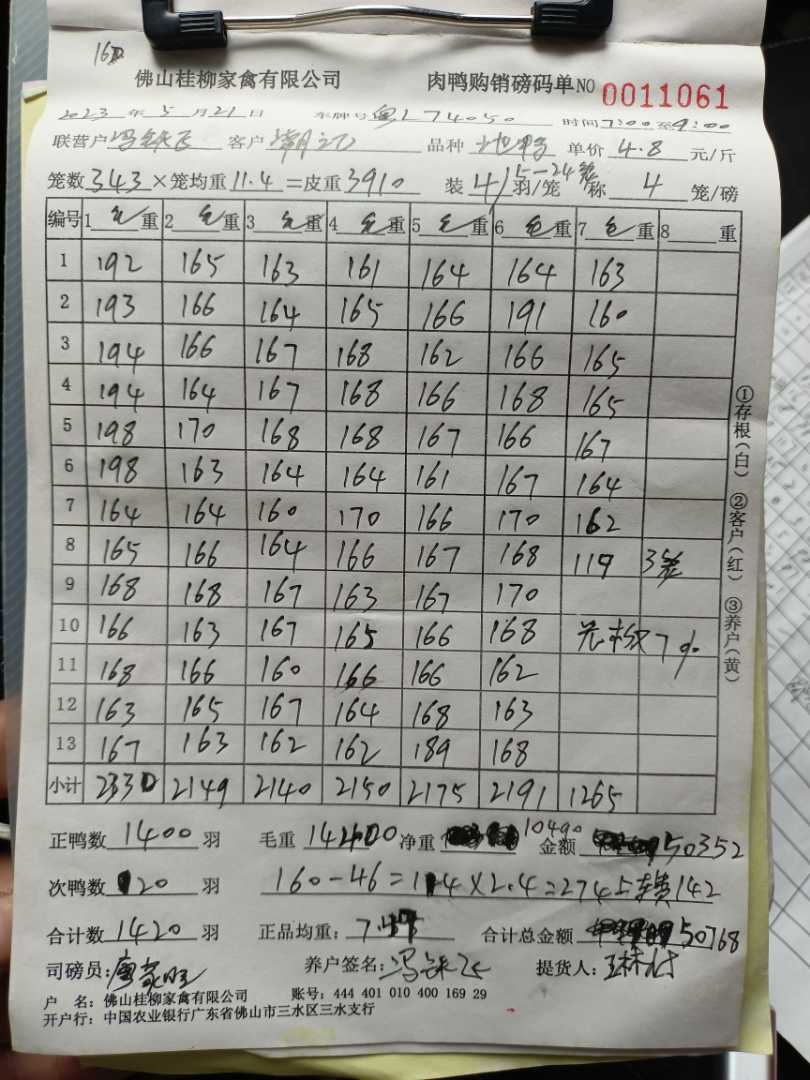 160
佛山桂柳家禽有限公司 肉鸭购销磅码单 NO 0011061
2023 年 5 月 21 日 车牌号 粤L74050 时间 7:00 至 9:00
联营户 冯 客户 品种 单价 4.8 元/斤
笼数 343 ×笼均重 11.4 =皮重 3910 装 4/5-24笼 羽/笼 称 4 笼/磅
编号 1 毛 重 2 毛 重 3 毛 重 4 毛 重 5 毛 重 6 毛 重 7 毛 重 8 重
1 192 165 163 161 164 164 163
2 193 166 164 165 166 191 160
3 194 166 167 168 162 166 165
4 194 164 167 168 166 168 165
5 198 170 168 168 167 166 167
6 198 163 164 164 161 167 164
7 164 164 160 170 166 170 162
8 165 166 164 166 167 168 119 3笼
9 168 168 167 163 167 170
10 166 163 167 165 166 168 光 7%
11 168 166 160 166 166 162
12 163 165 167 164 168 163
13 167 163 162 162 189 168
小计 2330 2149 2140 2150 2175 2191 1265
正鸭数 1400 羽 毛重 14400 净重 10490 金额 50352
次鸭数 20 羽 160-46=114×2.4=274 142
合计数 1420 羽 正品均重: 合计总金额 50768
司磅员: 养户签名: 冯 提货人:
户 名: 佛山桂柳家禽有限公司 账号: 444 401 010 400 169 29
开户行: 中国农业银行广东省佛山市三水区三水支行
①存根(白) ②客户(红) ③养户(黄)